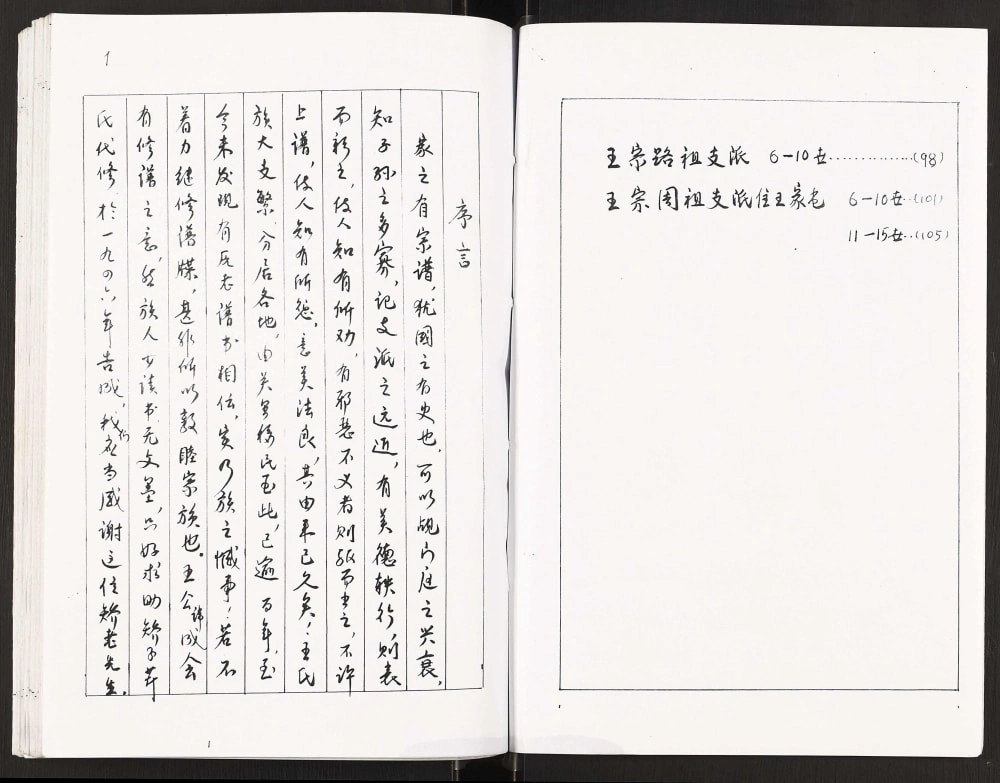 王宗路祖支派 6-10世..............(98)
王宗周祖支派住王家屯 6-10世..(101)
11-15世..(105)
1
序言
家之有宗谱,犹國之有史也,可以觇门庭之兴衰,
知子孙之多寡,记支派之远近,有美德轶行,则表
而彰之,使人知有所劝,有邪慝不义者则贬而书之,不许
上谱,使人知有所惩,意美法良,其由来已久矣!王氏
族大支繁,分居各地,由关里移民至此,已逾百年,至
今未发现有先老谱书相传,实乃族之憾事!若不
着力继修谱牒,甚非所以敦睦宗族也。王公讳成会
有修谱之意,然族人少读书无文墨,只好求助矫子芹
氏代修,於一九四六年告成,我们应当感谢这位矫老先生。
1